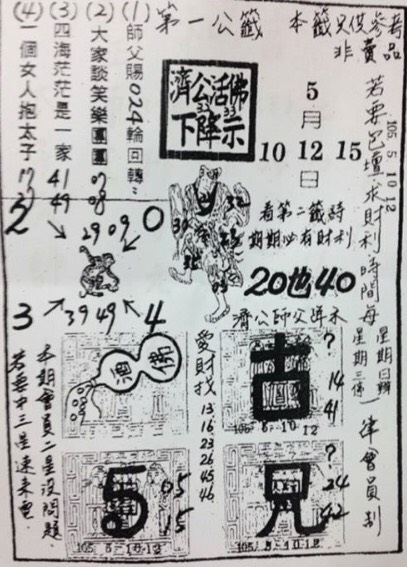 第一公籤
本籤只供參考
非賣品
(1)師父賜024輪回轉
(2)大家談笑樂團團 07 08
(3)四海茫茫是一家 41 49
(4)一個女人抱太子 17
濟公活佛
下降示
5月
10 12 15日
若要巴壇求財利時間每
105 5 10 12
星期日辦
星期三停
一律會員制
看第二籤詩
期期必有財利
20也40
濟公師父師示
2 29 09 0
3 39 49 4
32
愛財找
13
16
23
26
45
46
古
?
14
41
105-5-10.12
5
05
15
105/5-10-12
兄
?
24
42
105/5-10.12
本期會員二星沒問題
若要中三星速來電